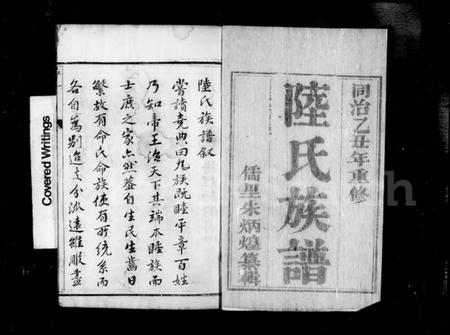 同治乙丑年重修
陸氏族譜
儒里朱炳煌纂輯
陸氏族譜叙
嘗讀堯典曰九族既睦平章百姓
乃知帝王治天下其端本睦族而
士庶之家亦然蓋自生民生齒日
繁故有命氏命族使有所統系而
各自爲別迨支分派遠雖服盡
Covered Writings